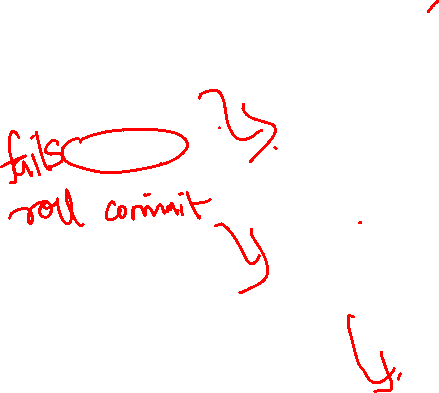 fails
roll commit